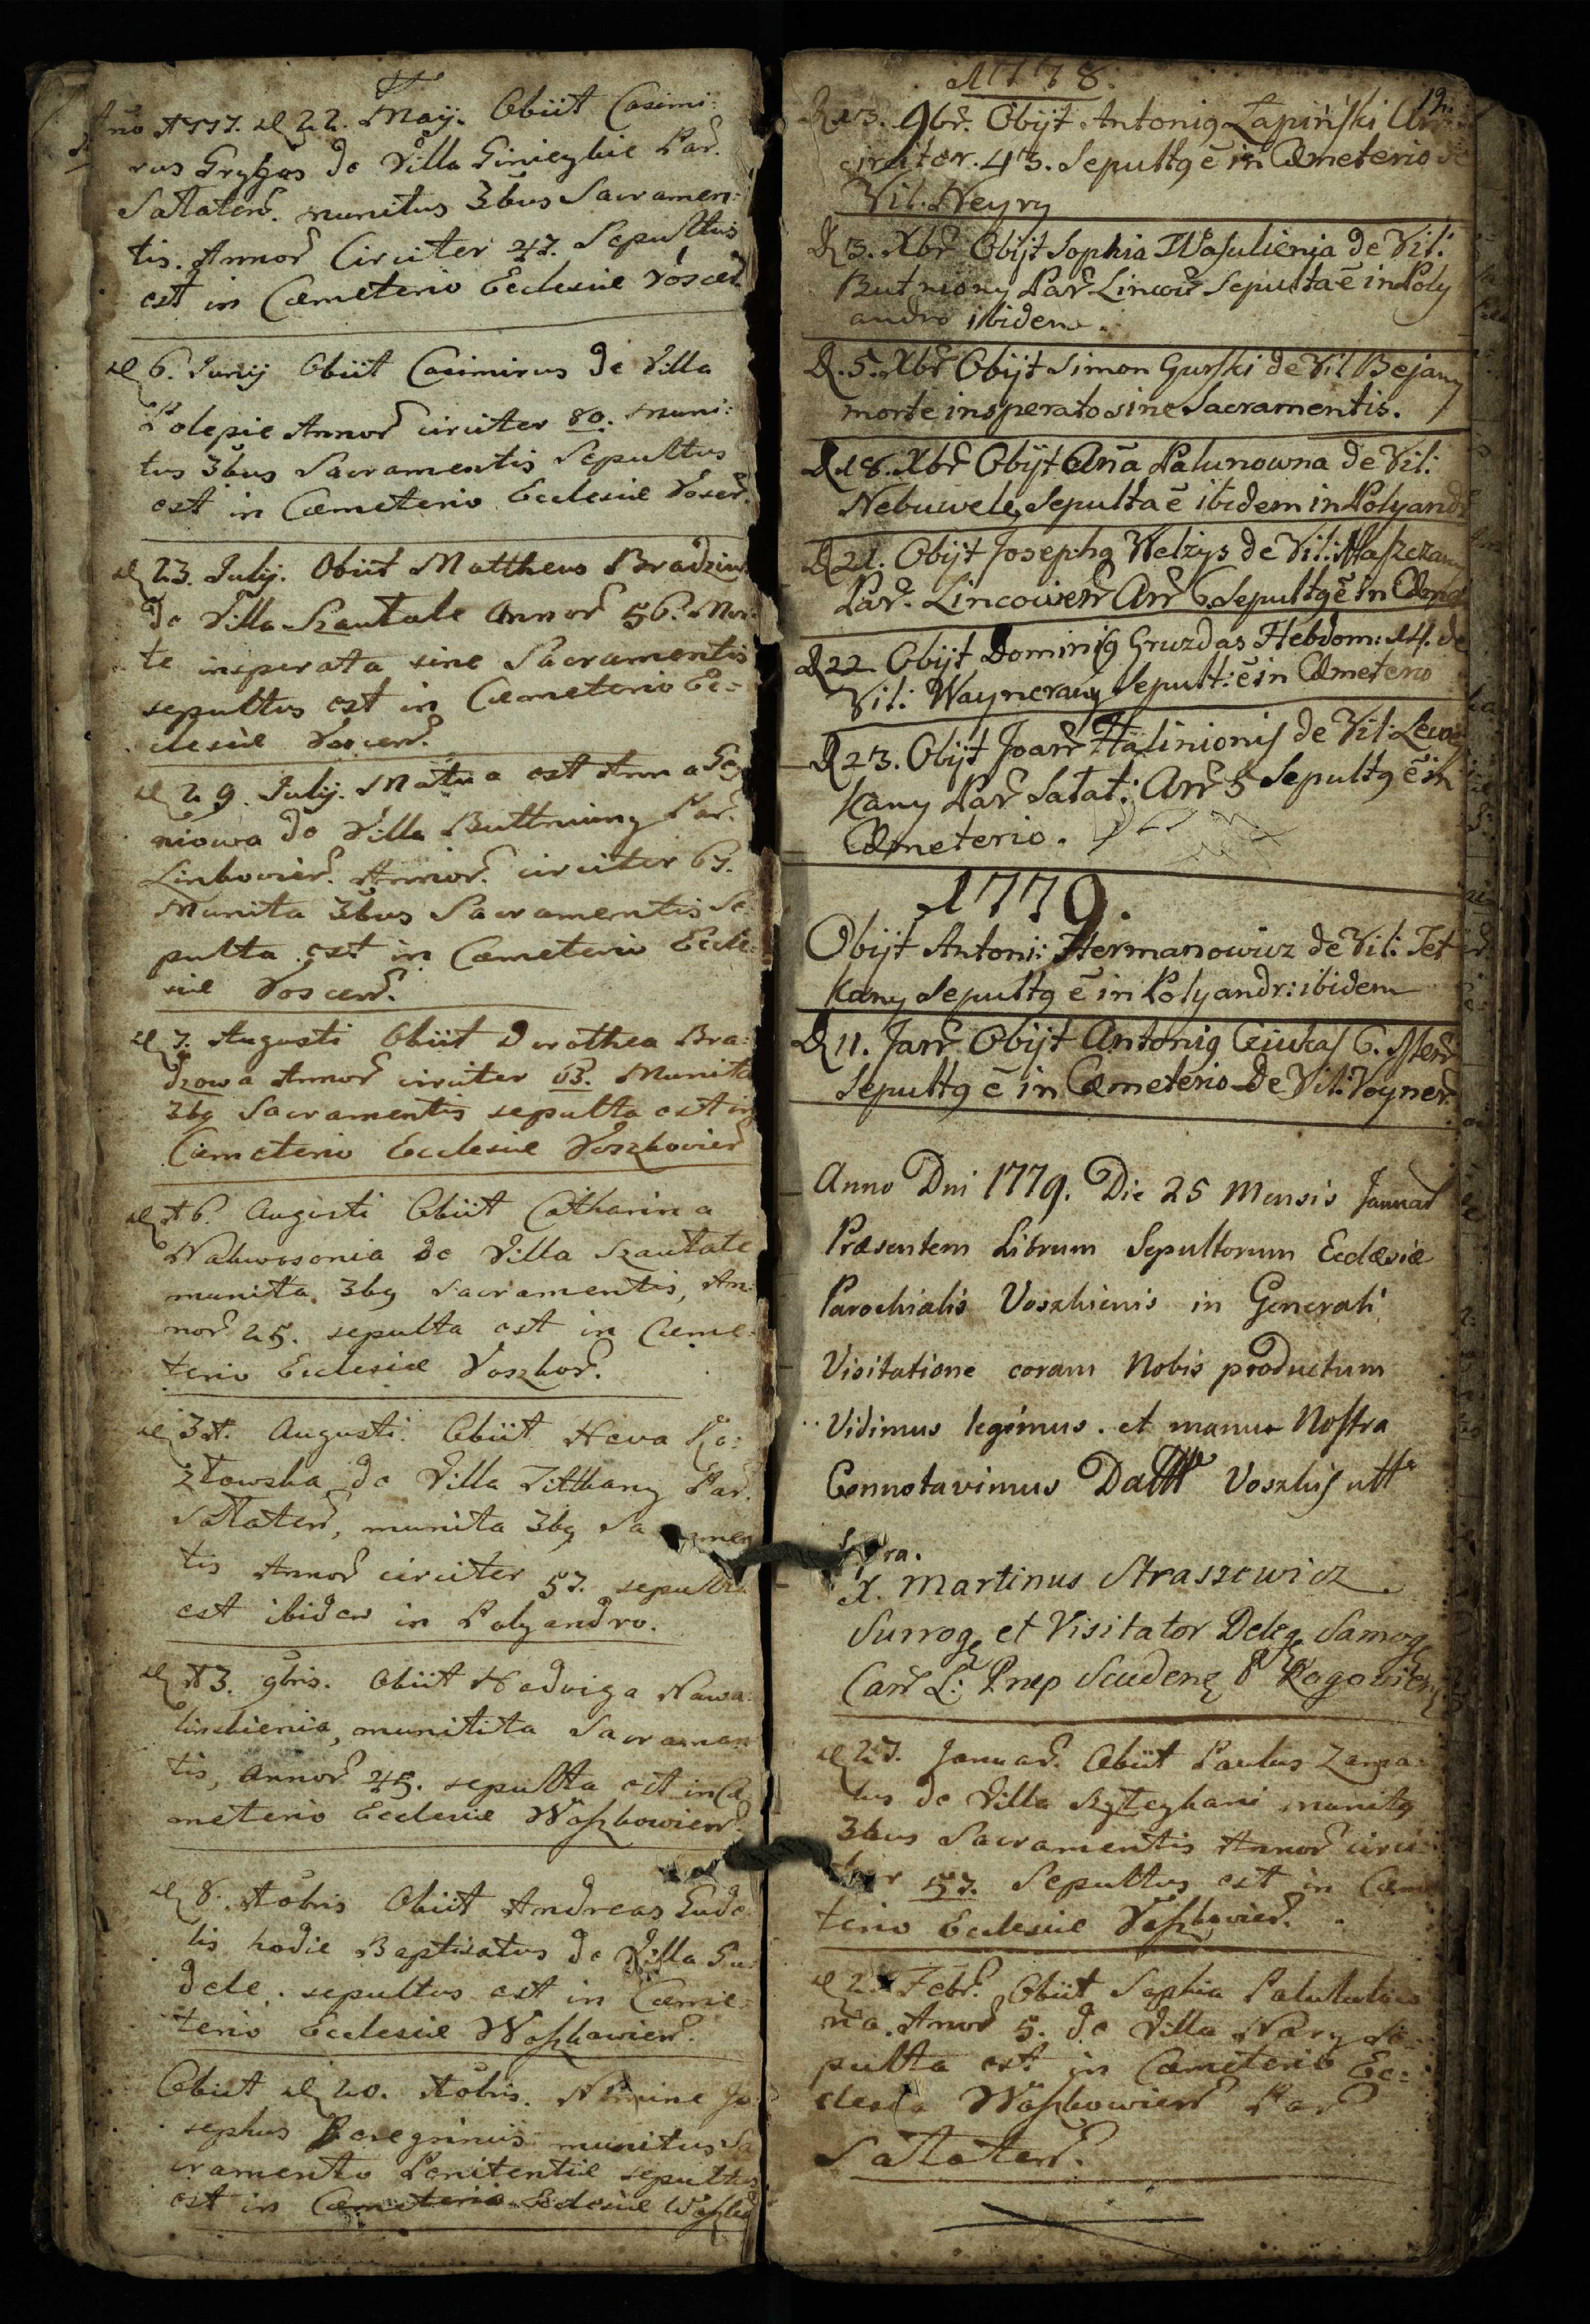 Año 1777. d 22. Maij. Obiit Casimi:
rus Grygas de Villa Ginieykie Par.
Sałateń. munitus 3bus Sacramen:
tis. Annor Circiter 47. Sepultus
est in Cæmeterio Ecclesiæ
d 6. Junij Obiit Casimirus de Villa
Polepie Annor circiter 80. muni:
tus 3bus Sacramentis Sepultus
est in Cæmeterio Ecclesiæ
d 23. Julij. Obiit Mattheus
de Villa Szantale Annor 56. Mor:
te insperata sine Sacramentis
sepultus est in Cæmeterio Ec=
clesiæ
d 29. Julij. Mortua est Anna
niowa de Villa Buttniuny Par.
Linkovień. Annor. circiter 67.
Munita 3bus Sacramentis Se:
pulta est in Cæmeterio Eccle:
siæ
d 7. Augusti Obiit Dorothea Bra:
dzowa Annor circiter 63. Munita
3bg Sacramentis sepulta est in
Cæmeterio Ecclesiæ Voszkovień
d 16. Augusti Obiit Catharina
de Villa Szantale
munita 3bg Sacramentis, An:
nor 25. sepulta est in Cæme:
terio Ecclesiæ Voszkov.
d 31. Augusti Obiit Heva Ko:
złowska de Villa Par.
Sałateń, munita 3bg
tis Annor circiter 57. sepulta
est ibidem in Polyandro.
d 13. 9bris. Obiit Hedviga Nawa:
munitita Sacramen
tis, Annor 45. sepulta est in Cæ
meterio Ecclesiæ Woszkowień.
d 8. Xobris Obiit Andreas Gude
lis hodie Baptisatus de Villa Gu:
dele. sepultus est in Cæme:
terio Ecclesiæ Woszkowień.
Obiit d 20. Xobris. Nomine Jo
sephus Peregrinus munitus Sa
cramento Penitentiæ sepultus
est in Cæmeterio Ecclesiæ
1778.
12.
D 13. 9br. Obijt Antonig Łapiński Anr:
circiter. 43. Sepultg ē in Cæmeterio de
Vil. Neyry
D 3. Xbr Obijt Sophia Wasulienia de Vil:
Butniony Par Lincow Sepulta ē in Poly
andro ibidem.
D. 5. Xbr Obijt Simon Gurski de Vil Bejany
morte insperato sine Sacramentis.
D. 18. Xbr Obijt Aña Palunowna de Vil:
Nebuwele, Sepulta ē ibidem in Polyandr
D 21. Obijt Josephg Welżys de Vil:
Par. Lincowień Anr 6. Sepultg ē in
D 22. Obijt Dominig Gruzdas Hebdom: 14. de
Vil: Waynerany Sepult: ē in Cæmeterio
D 23. Obijt Joañ Halinionis de Vil:
kany Par Sałat: Anr 5 Sepultg ē in
Cæmeterio.
1779.
Obijt Antoni: Hermanowicz de Vil: Jet
kany Sepultg ē in Polyandr: ibidem
D 11. Jañr Obijt Antonig Cziukas 6. Mens
Sepultg ē in Cæmeterio de Vil: Voyner.
Anno Dni 1779. Die 25 Mensis Januar
Præsentem Librum Sepultorum Ecclæsiæ
Parochialis Voszkienis in Generali
Visitatione coram Nobis productum
Vidimus legimus. et manu Nostra
Connotavimus Datt Voszkis utt
Supra.
X. Martinus Straszewicz
Surrog et Visitator Deleg Samog
Can L: Prep Scuden & Rogowień
d 27. Januar. Obiit Paulus
lus de Villa munitg
3bus Sacramentis Annor circi:
ter 57. Sepultus est in Cæme
terio Ecclesiæ Voszkovień.
d 2. Febr. Obiit Sophia
na. Annor 5. de Villa Nary Se:
pulta est in Cæmeterio Ec:
clesia Woszkowień Par
Sałateń.